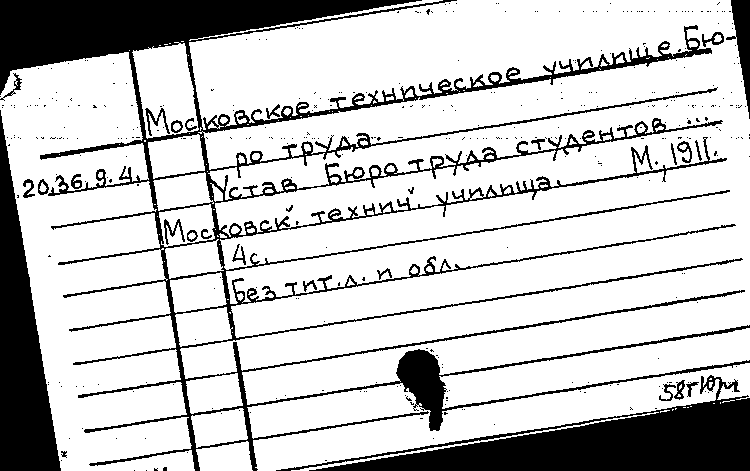 Московское техническое училище. Бю-
ро труда.
20,36,9.4,
Устав Бюро труда студентов ...
Московск. технич. училища. М., 1911.
4с.
Без тит. л. и обл.